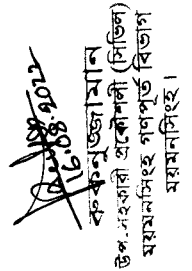 16.08.2022
রুকনুজ্জামান
উপ-সহকারী প্রকৌশলী (সিভিল)
ময়মনসিংহ গণপূর্ত বিভাগ
ময়মনসিংহ।